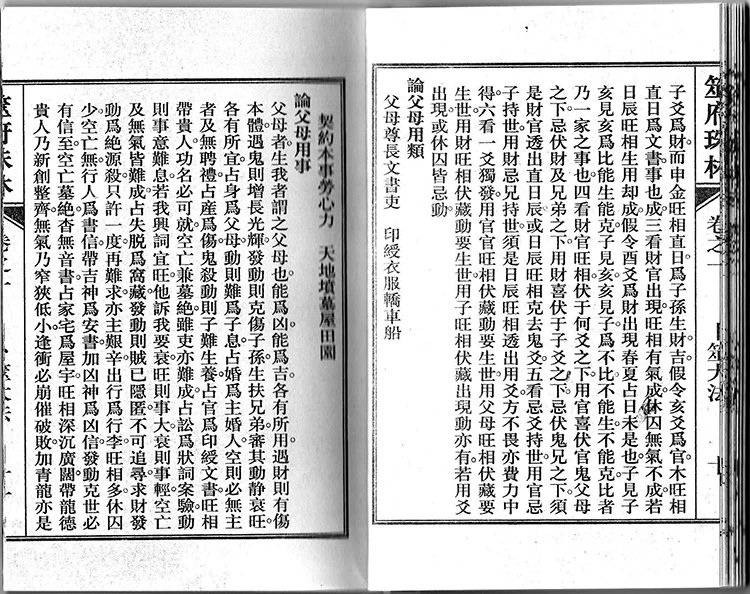 筮府珠林 卷之一
子爻爲財而申金旺相直日爲子孫生財吉假令亥爻爲官木旺相
直日爲文書事也成三看財官出現旺相有氣成休囚無氣不成若
日辰旺相生用却成假令酉爻爲財出現春夏占日未是也子見子
亥見亥爲比能生能克子見亥亥見子爲不比不能生不能克比者
乃一家之事也四看財官旺相伏于何爻之下用官喜伏官鬼父母
之下忌伏財及兄弟之下用財喜伏于子爻之下忌伏鬼兄之下須
是財官透出直日辰或日辰旺相克去鬼爻五看忌爻持世用官忌
子持世用財忌兄持世須是日辰旺相透出用爻方不畏亦費力中
得六看一爻獨發用官官旺相伏藏動要生世用父母旺相伏藏要
生世用財旺相伏藏動要生世用子旺相伏藏出現動亦有若用爻
出現或休囚皆忌動
論父母用類
父母尊長文書吏 印綬衣服轎車船
契約本事勞心力 天地墳墓屋田園
論父母用事
父母者生我者謂之父母也能爲凶能爲吉各有所用遇財則有傷
本體遇鬼則增長光輝發動則克傷子孫生扶兄弟審其動静衰旺
各有所宜占身爲父母動則難爲子息占婚爲主婚人空則必無主
者及無聘禮占産爲傷鬼殺動則子難生養占官爲印綬文書旺相
帶貴人功名必可就空亡兼墓絶雖吏亦難成占訟爲狀詞案驗動
則事意難息若我興詞宜旺他訴我要衰旺則事大衰則事輕空亡
及無氣皆難成占失脱爲窩藏發動則賊已隱匿不可追尋求財發
動爲絶源殺只許一度再難求亦主艱辛出行爲行李旺相多休囚
少空亡無行人爲書信帶吉神爲安書加凶神爲凶信發動克世必
有信至空亡墓絶杳無音書占家宅爲屋宇旺相深沉廣闊帶龍德
貴人乃新創整齊無氣乃窄狹低小逢衝必崩催破敗加青龍亦是